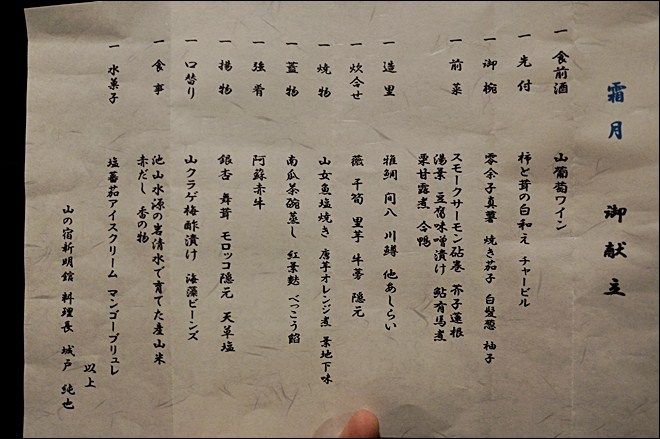 霜月 御献立
一 食前酒 山葡萄ワイン
一 先付 柿と茸の白和え チャービル
一 御椀 零余子真薯 焼き茄子 白髪葱 柚子
一 前菜 スモークサーモン砧巻 芥子蓮根
湯葉 豆腐味噌漬け 鮎有馬煮
栗甘露煮 合鴨
一 造里 雅鯛 間八 川鱒 他あしらい
一 炊合せ 薇 干筍 里芋 牛蒡 隠元
一 焼物 山女魚塩焼き 唐芋オレンジ煮 葉地下味
一 蓋物 南瓜茶碗蒸し 紅葉麩 べっこう餡
一 強肴 阿蘇赤牛
一 揚物 銀杏 舞茸 モロッコ隠元 天草塩
一 口替り 山クラゲ梅酢漬け 海藻ビーンズ
一 食事 池山水源の岩清水で育てた産山米
赤だし 香の物
一 水菓子 塩蕃茄アイスクリーム マンゴーブリュレ
以上
山の宿新明館 料理長 城戸 純也